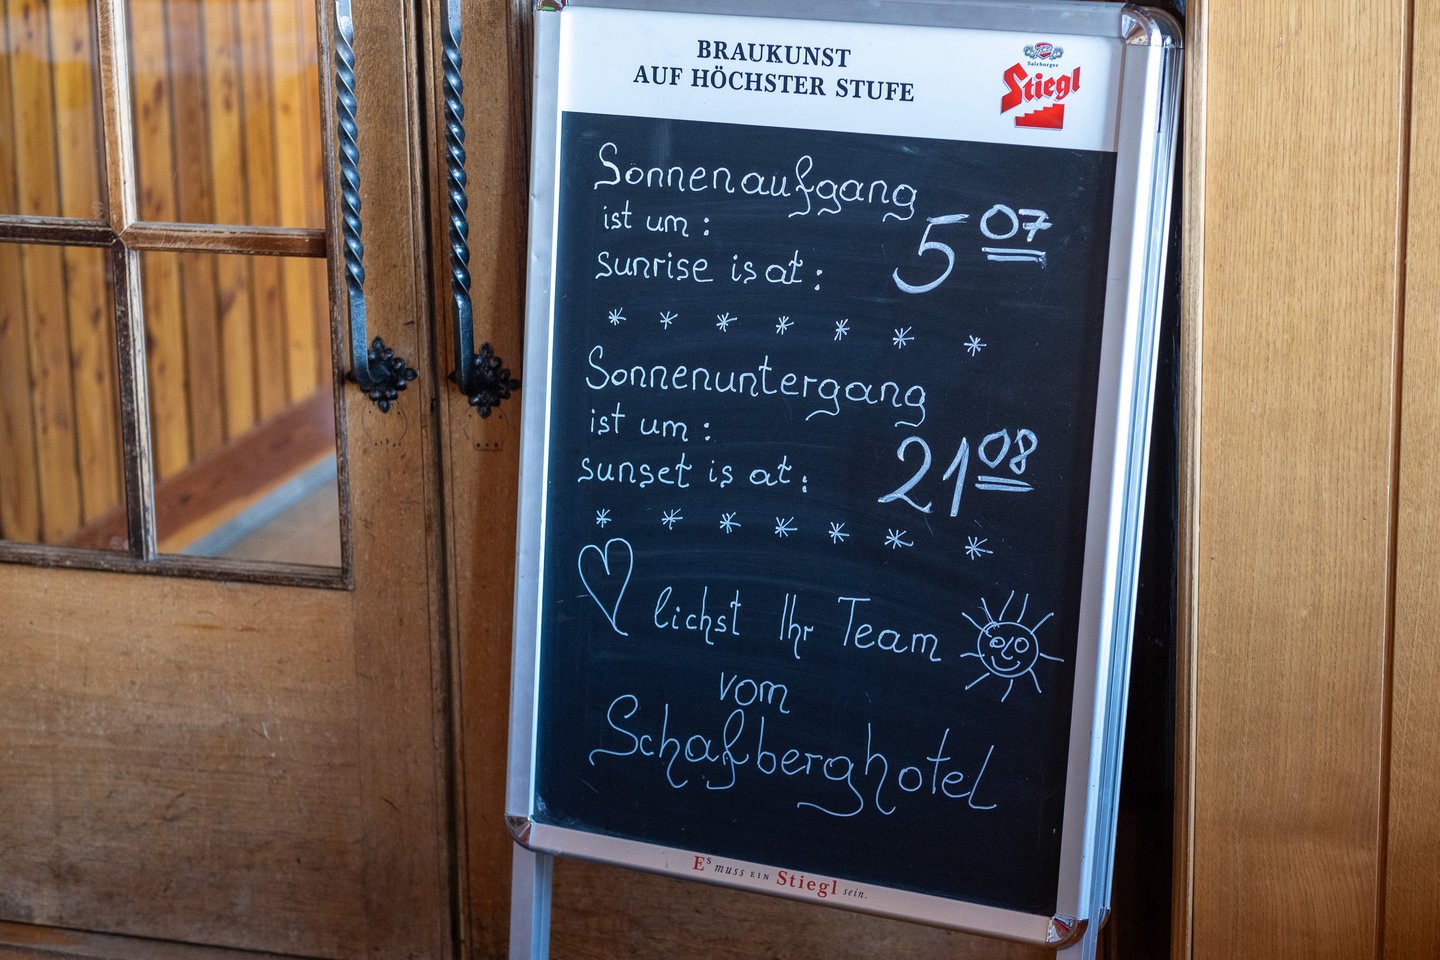 BRAUKUNST
AUF HÖCHSTER STUFE
Salzburger
Stiegl
Sonnenaufgang
ist um:
sunrise is at: 5 07
* * * * * * *
Sonnenuntergang
ist um:
sunset is at: 21 08
* * * * * * *
lichst Ihr Team
vom
Schafberghotel
Es muss ein Stiegl sein.